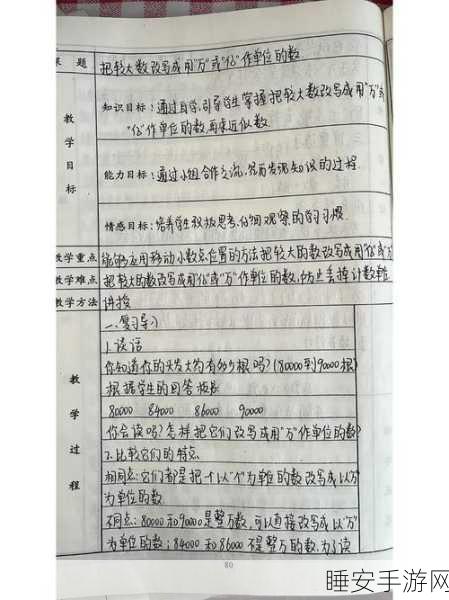 课题 把较大数改写成用"万"或"亿"作单位的数
教学目标
知识目标:通过自学,引导学生掌握把较大数改写成用"万"或
"亿"作单位的数,再求近似数.
能力目标:通过小组合作交流,发现知识的过程.
情感目标:培养学生积极思考,仔细观察的学习习惯.
教学重点 能够应用移动小数点位置的方法把较大的数改写成用"亿"或"万"
教学难点 把较大的数改写成用"亿"或"万"作单位的数,防止丢掉计数单位
教学方法 讲授
教学过程
一.复习导入
1.谈话
你知道你的头发大约有多少根吗?(80000到90000根)
根据学生的回答板书
80000 84000 86000 90000
你会读吗?怎样把它们改写成用"万"作单位的数?
2.比较它们的特点
相同点:它们都是把一个以"个"为单位的数改写成以"万"
为单位的数
不同点:80000和90000是整万数,可以直接改写成以"万"
为单位的数;84000和86000不是整万的数,为了读
80
睡安手游网